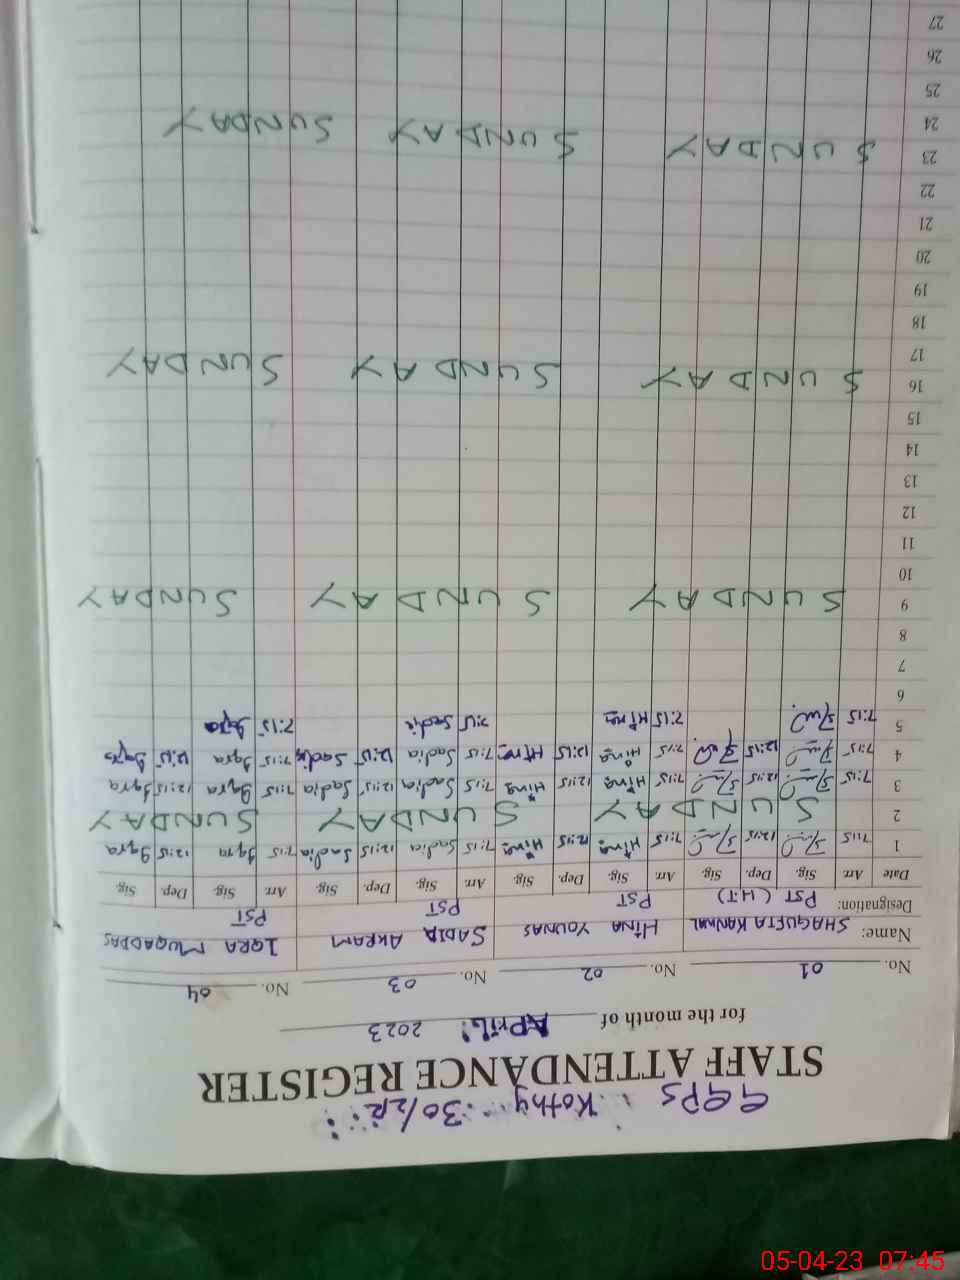 GGPS Kothy 30/2R
STAFF ATTENDANCE REGISTER
for the month of APRIL! 2023
No. 01 No. 02 No. 03 No. 04
Name: SHAGUFTA KANWAL HINA YOUNAS SADIA AKRAM IQRA MUQADDAS
Designation: PST (H.T) PST PST PST
Date Arr. Sig. Dep. Sig. Arr. Sig. Dep. Sig. Arr. Sig. Dep. Sig. Arr. Sig. Dep. Sig.
1 7:15 12:15 7:15 Hina 12:15 Hina 7:15 Sadia 12:15 Sadia 7:15 Iqra 12:15 Iqra
2 SUNDAY SUNDAY SUNDAY SUNDAY
3 7:15 12:15 7:15 Hina 12:15 Hina 7:15 Sadia 12:15 Sadia 7:15 Iqra 12:15 Iqra
4 7:15 12:15 7:15 Hina 12:15 Hina 7:15 Sadia 12:15 Sadia 7:15 Iqra 12:15 Iqra
5 7:15 7:15 Hina 7:15 Sadia 7:15 Iqra
6
7
8
9 SUNDAY SUNDAY SUNDAY
10
11
12
13
14
15
16 SUNDAY SUNDAY SUNDAY
17
18
19
20
21
22
23 SUNDAY SUNDAY SUNDAY
24
25
26
27
05-04-23 07:45